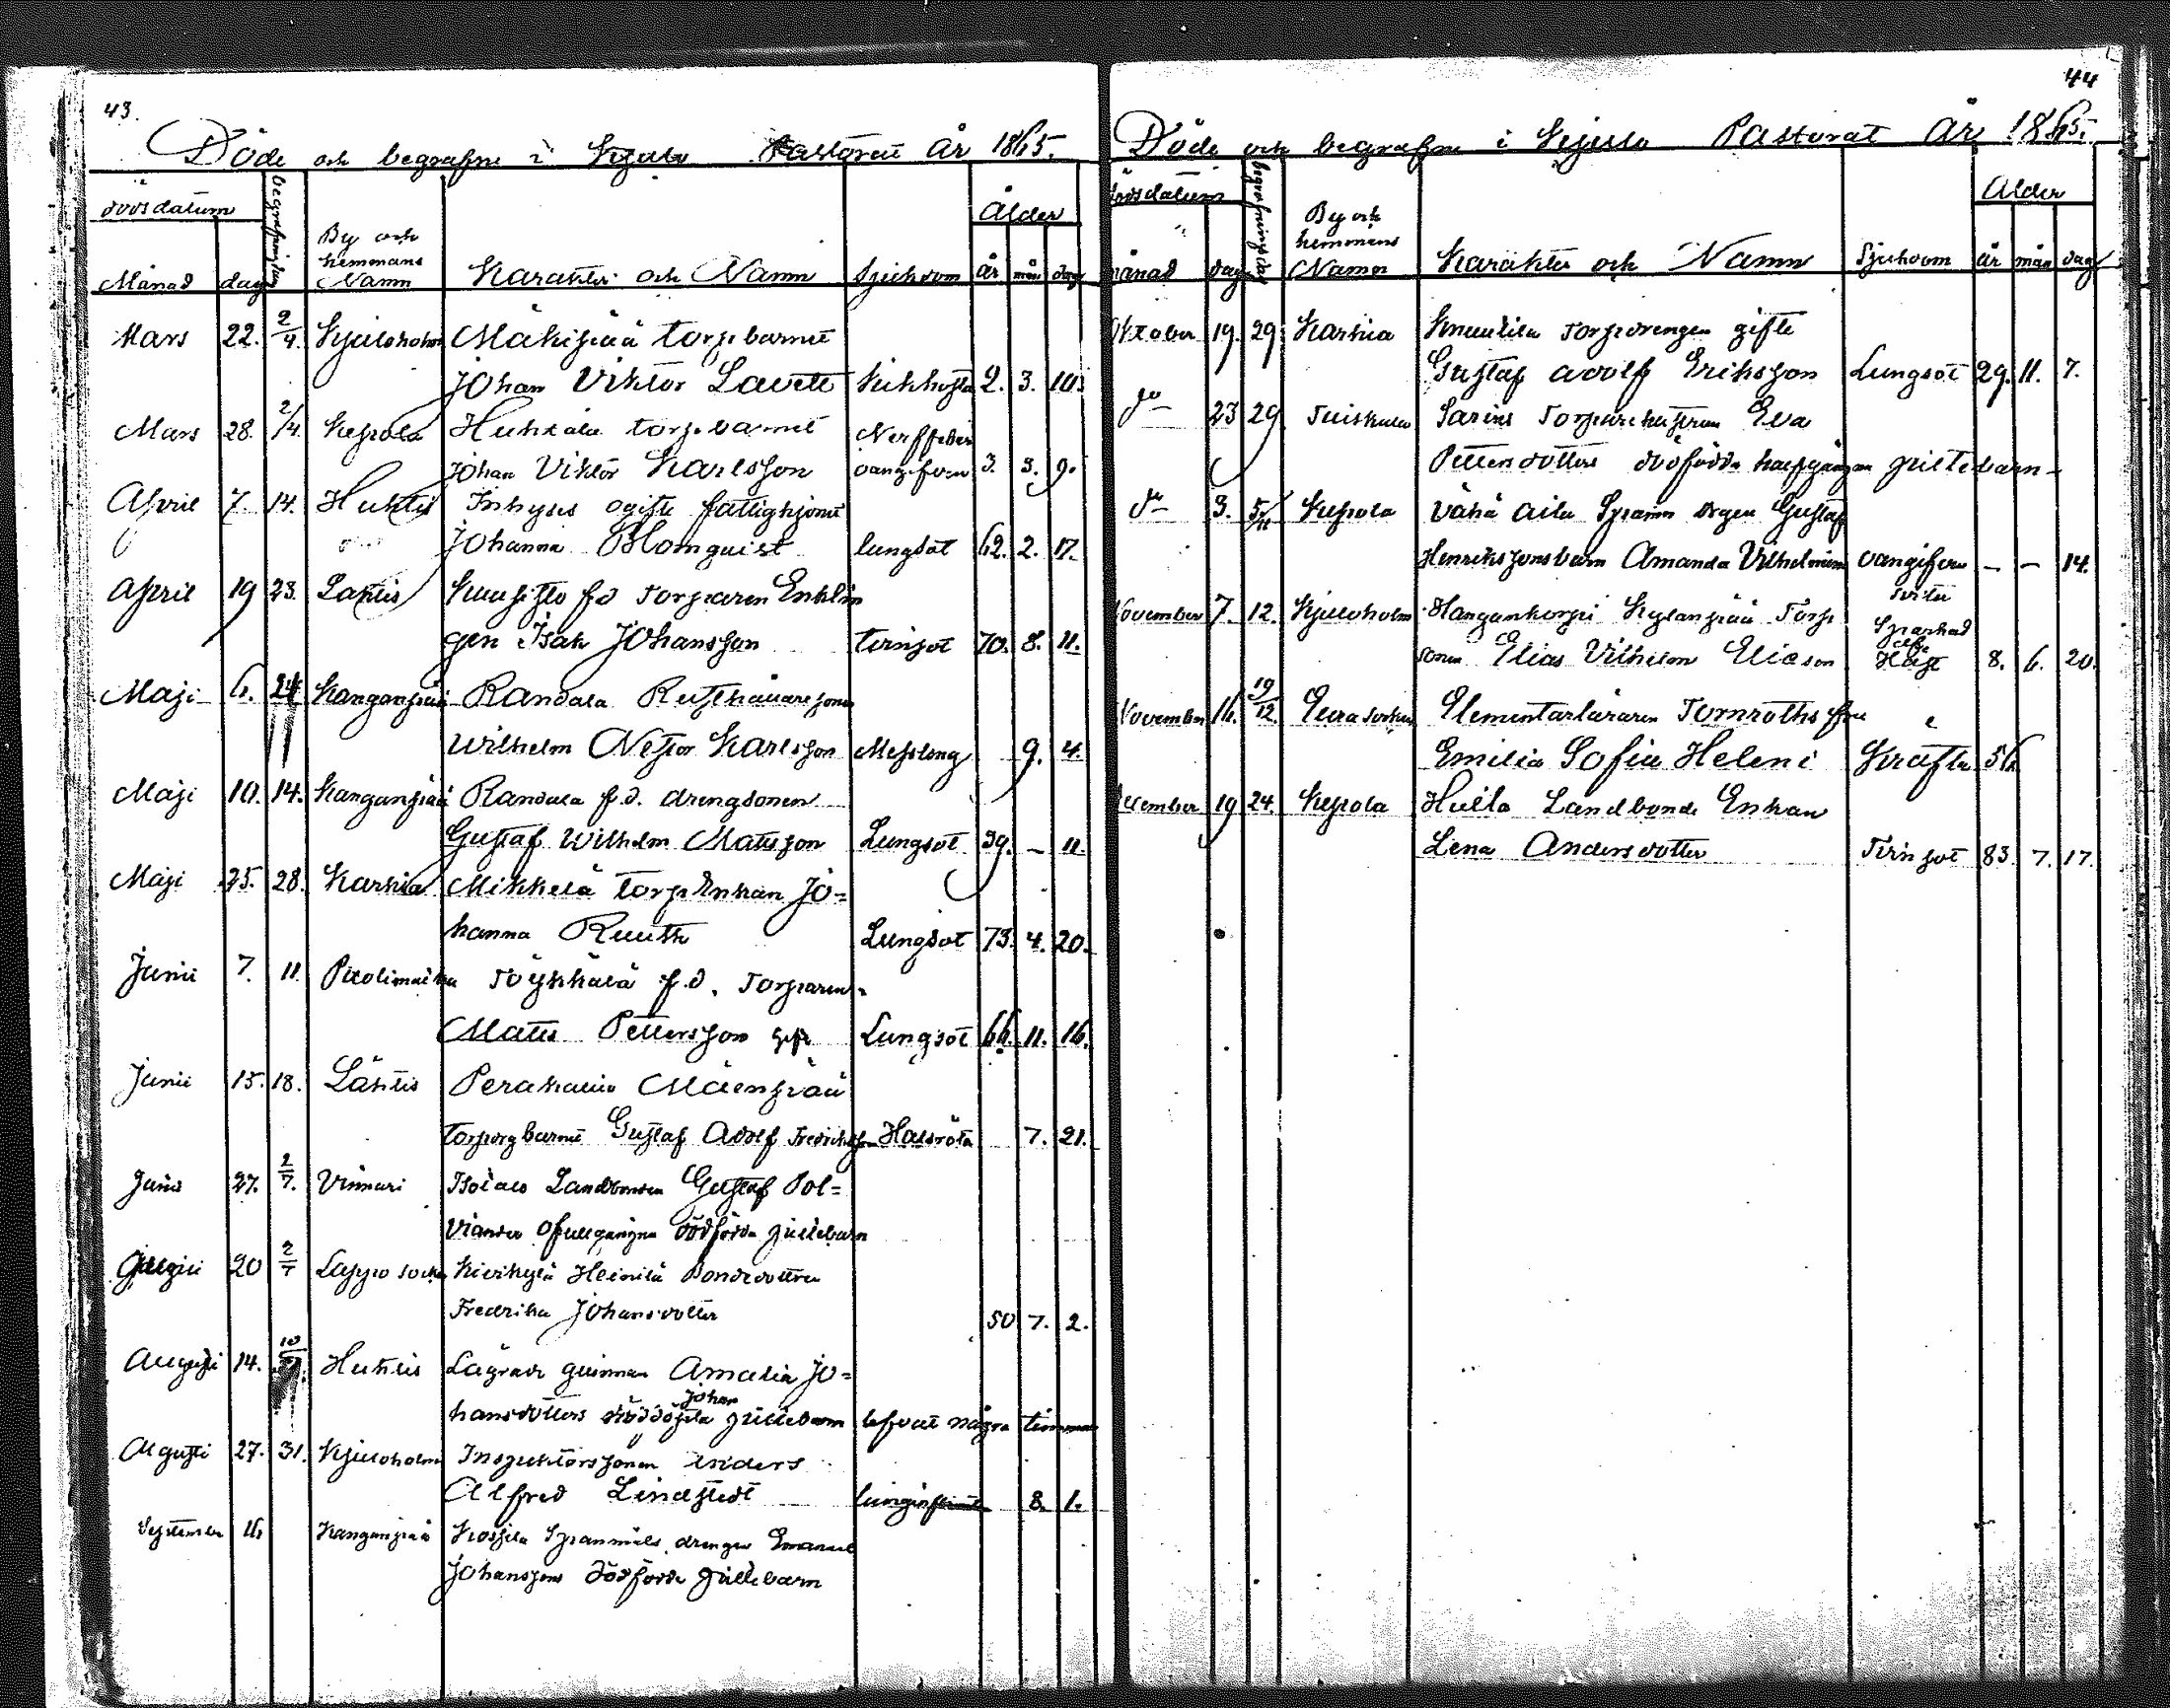 43.
Döde och begrafne i Kjulo Pastorat År 1865.
dödsdatum
begrafningsdag
By och
hemmans
Namn
Karakter och Namn
Sjukdom
Ålder
Månad dag
år mån dag
Mars 22. 2/4. Kjuloholm Mäkipää torpbarnet
Johan Viktor Lavett Kikhosta 2. 3. 10.
Mars 28. 2/4. Kepola Huhtala torpbarnet Nerffeber
Johan Viktor Karlsson 3. 3. 9.
April 7. 14. Huhtis Inhyses ogifte fattighjonet
Johanna Blomquist lungsot 62. 2. 17.
April 19 23. Lähtis f.d Torparen Enklin
gen Isak Johansson tärinsot 70. 8. 11.
Maji 6. 24 Kanganpää Randala Rusthållaresonen
Wilhelm Nestor Karlsson Messling 9. 4.
Maji 10. 14. Kanganpää Randala f.d. drengsonen
Gustaf Wilhelm Matsson Lungsot 39. – 11.
Maji 25. 28. Karhia Mikkelä torp Enkan Jo=
hanna Ruuth Lungsot 73. 4. 20.
Junii 7. 11. Töykkälä f.d. Torparen
Matts Pettersson gift Lungsot 66. 11. 16.
Junii 15. 18. Lähtis Perakallio Mäenpää
torpdrg barnet Gustaf Adolf Fredriksson Halsröta 7. 21.
Junii 27. 2/7. Vinnari Isotalo Landbonden Gustaf Pol=
viander ofullgångna dödfödda gillebarn
20 2/7 Lappo socken Kivikylä Heinilä Bondedottren
Fredrika Johansdotter 50 7. 2.
Augusti 14. Huhtis Lägrade qvinnan Amalia Jo=
Johan
hansdotters gillebarn lefvat några timmar
Augusti 27. 31. Kjuloholm Inspektorssonen Anders
Alfred Lindstedt 8. 1.
September 16 Kanganpää Spanmåls drengen Emanuel
Johanssons dödfödda gillebarn
44
Döde och begrafne i Kjulo Pastorat År 1865.
dödsdatum
begrafningsdag
By och
hemmans
Namn
Karakter och Namn
Sjukdom
Ålder
Månad dag
år mån dag
Oktober 19. 29. Karhia Knuutila Torpdrengen gifte
Gustaf Adolf Eriksson Lungsot 29. 11. 7.
do 23 29 Tuiskula Eva
Pettersdotters dödfödda gillebarn
do 3. 5/11 Kepola Vähä Aila Spanm drgen Gustaf
Henrikssons barn Amanda Vilhelmina – – 14.
November 7. 12. Kjuloholm Hangankorpi Kylänpää Torp
sonen Elias Vilhelm Eliason 8. 6. 20.
November 16. 19/12. Eura socken Elementarläraren Törnroths fru
Emilia Sofia Heleni Kräfta 56
December 19 24. Kepola Huilo Landbonde Enkan
Lena Andersdotter Tärinsot 83. 7. 17.